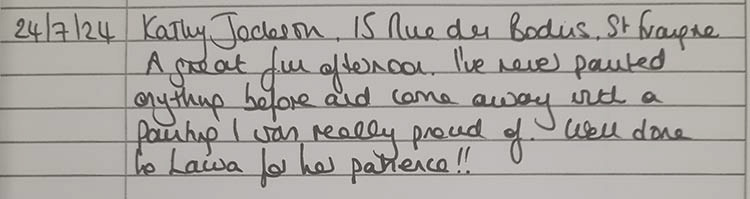 24/7/24 Kathy Jackson, 15 Rue des Bodus, St
A great fun afternoon. I've never painted
anything before and came away with a
painting I was really proud of. Well done
to Lawa for her patience!!